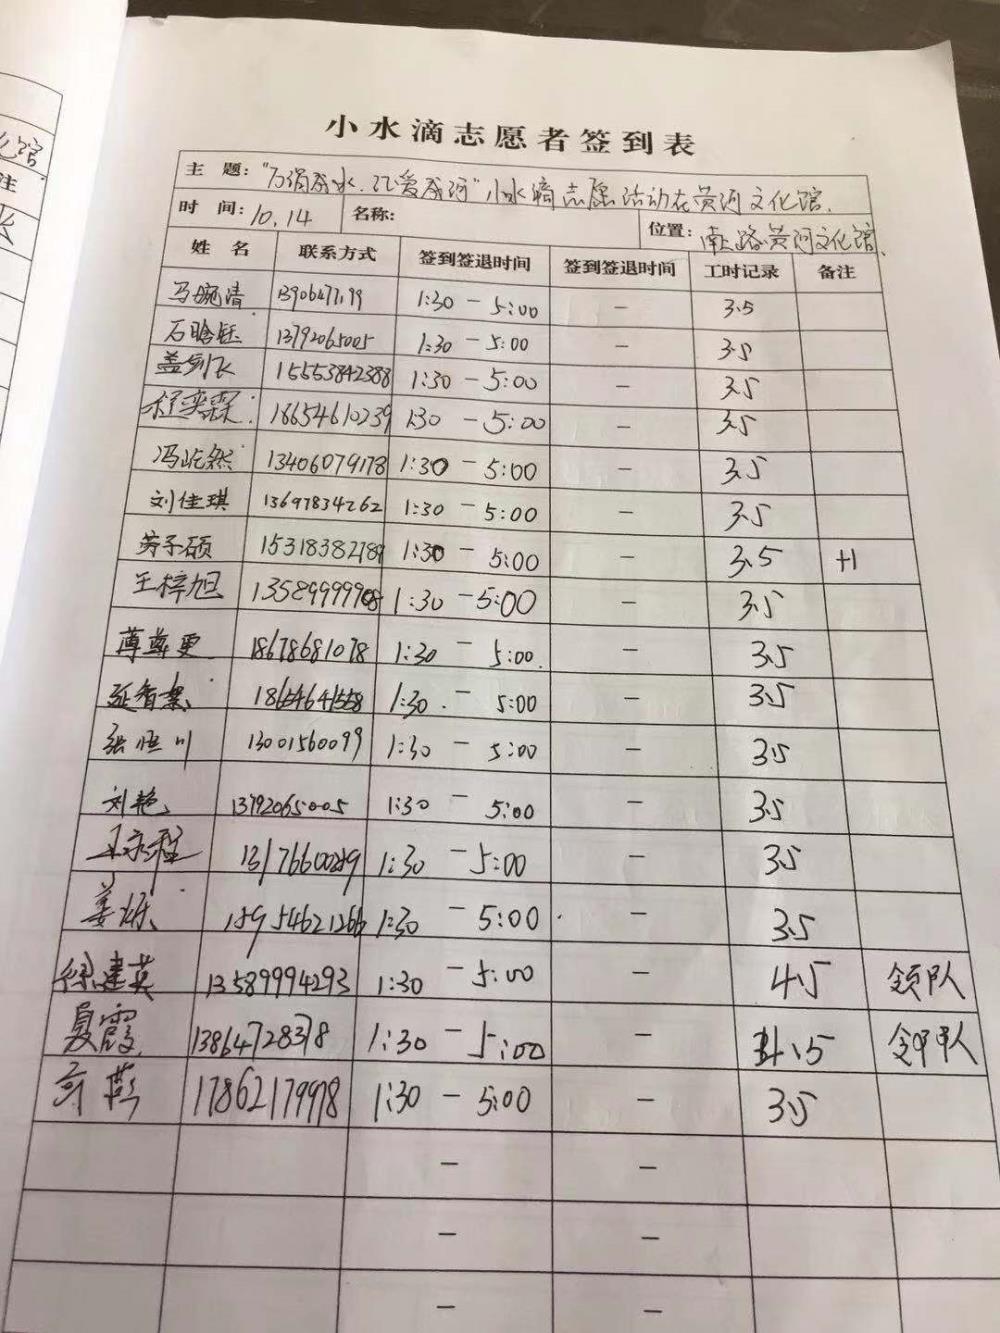 小水滴志愿者签到表
主 题："万涓成水，汇爱成河"小水滴志愿活动在黄河文化馆.
时 间：10.14 名称： 位置：南二路黄河文化馆.
姓 名 联系方式 签到签退时间 签到签退时间 工时记录 备注
马婉清 1:30 - 5:00 - 3.5
石晗钰 13792065005 1:30 - 5:00 - 3.5
盖剑飞 15553842388 1:30 - 5:00 - 3.5
程奕霖 18654610239 1:30 - 5:00 - 3.5
冯屹然 13406079178 1:30 - 5:00 - 3.5
刘佳琪 13697834262 1:30 - 5:00 - 3.5
劳子硕 15318382789 1:30 - 5:00 - 3.5 +1
王梓旭 1:30 - 5:00 - 3.5
薄尊更 18678681078 1:30 - 5:00 - 3.5
延智 1:30 - 5:00 - 3.5
张恒川 13001560099 1:30 - 5:00 - 3.5
刘艳 13792065005 1:30 - 5:00 - 3.5
1:30 - 5:00 - 3.5
姜烁 15954621266 1:30 - 5:00 - 3.5
徐建英 13589994293 1:30 - 5:00 - 4.5 领队
夏霞 13864728378 1:30 - 5:00 - 4.5 领队
17862179978 1:30 - 5:00 - 3.5
- -
- -
- -